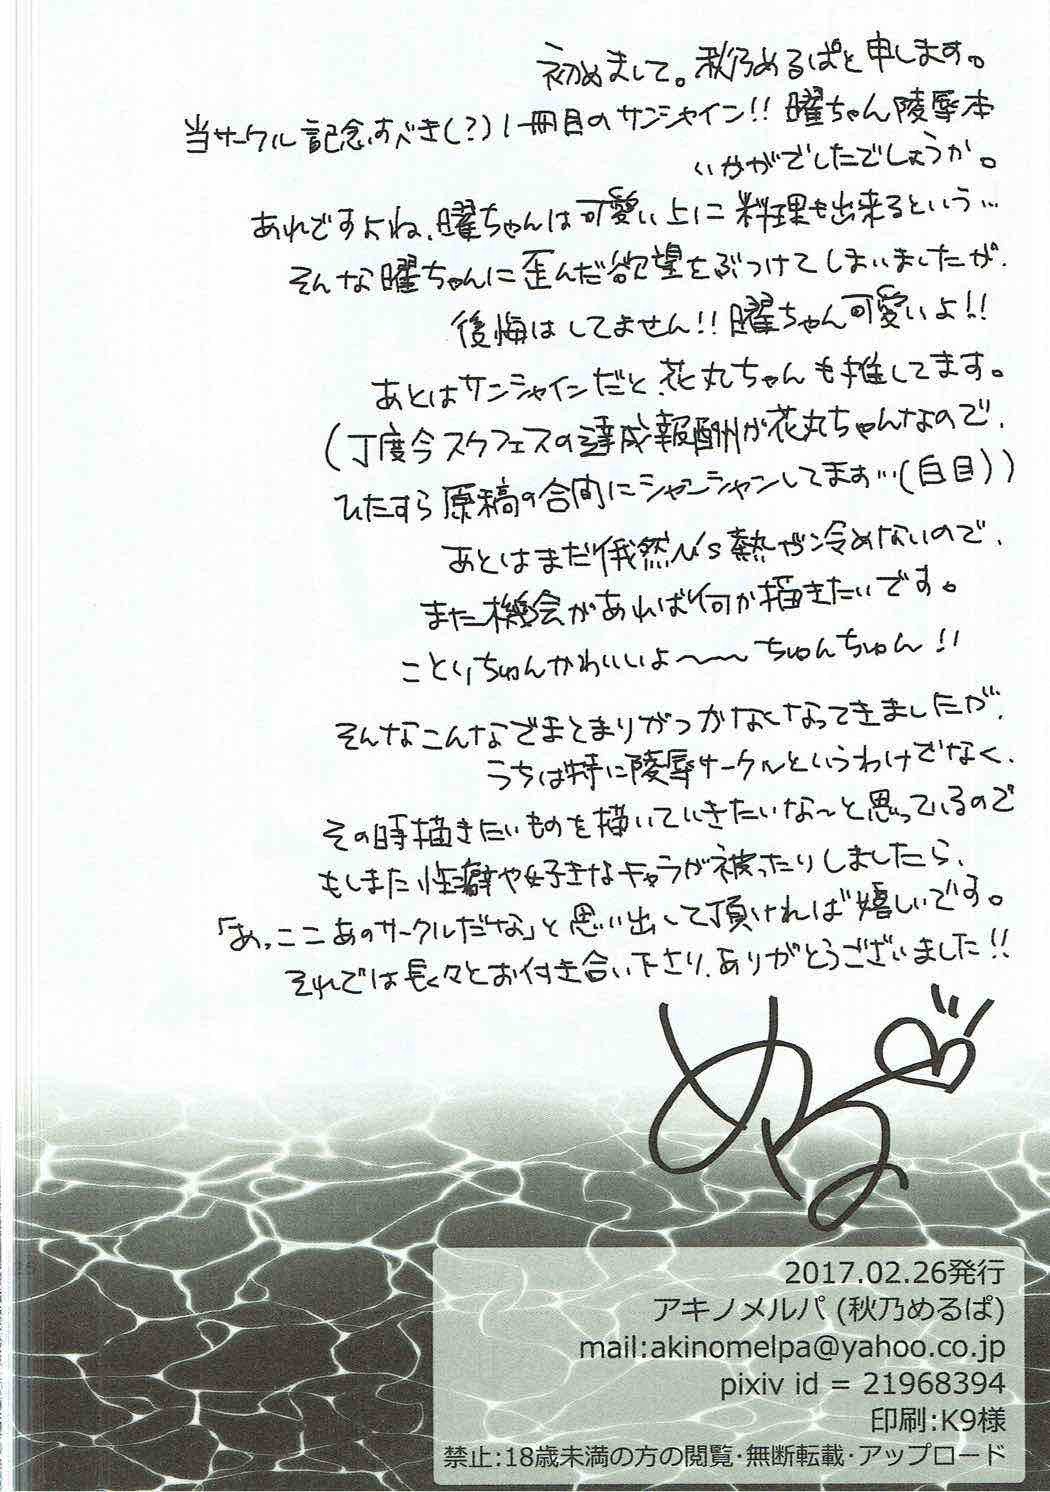 初めまして。秋乃めるぱと申します。
当サークル記念すべき(?)1冊目のサンシャイン!!曜ちゃん陵辱本
いかがでしたでしょうか。
あれですよね、曜ちゃんは可愛い上に料理も出来るという…
そんな曜ちゃんに歪んだ欲望をぶつけてしまいましたが、
後悔はしてません!!曜ちゃん可愛いよ!!
あとはサンシャインだと、花丸ちゃんも推してます。
(丁度今スクフェスの達成報酬が花丸ちゃんなので、
ひたすら原稿の合間にシャンシャンしてます…(白目))
あとはまだ俄然μ's熱が冷めないので、
また機会があれば何か描きたいです。
ことりちゅんかわいいよ〜〜〜ちゅんちゅん!!
そんなこんなでまとまりがつかなくなってきましたが、
うちは特に陵辱サークルというわけでなく、
その時描きたいものを描いていきたいな〜と思っているので
もしまた性癖や好きなキャラが被ったりしましたら、
「あっここあのサークルだな」と思い出して頂ければ嬉しいです。
それでは長々とお付き合い下さり、ありがとうございました!!
める
2017.02.26発行
アキノメルパ (秋乃めるぱ)
mail:akinomelpa@yahoo.co.jp
pixiv id = 21968394
印刷:K9様
禁止:18歳未満の方の閲覧・無断転載・アップロード